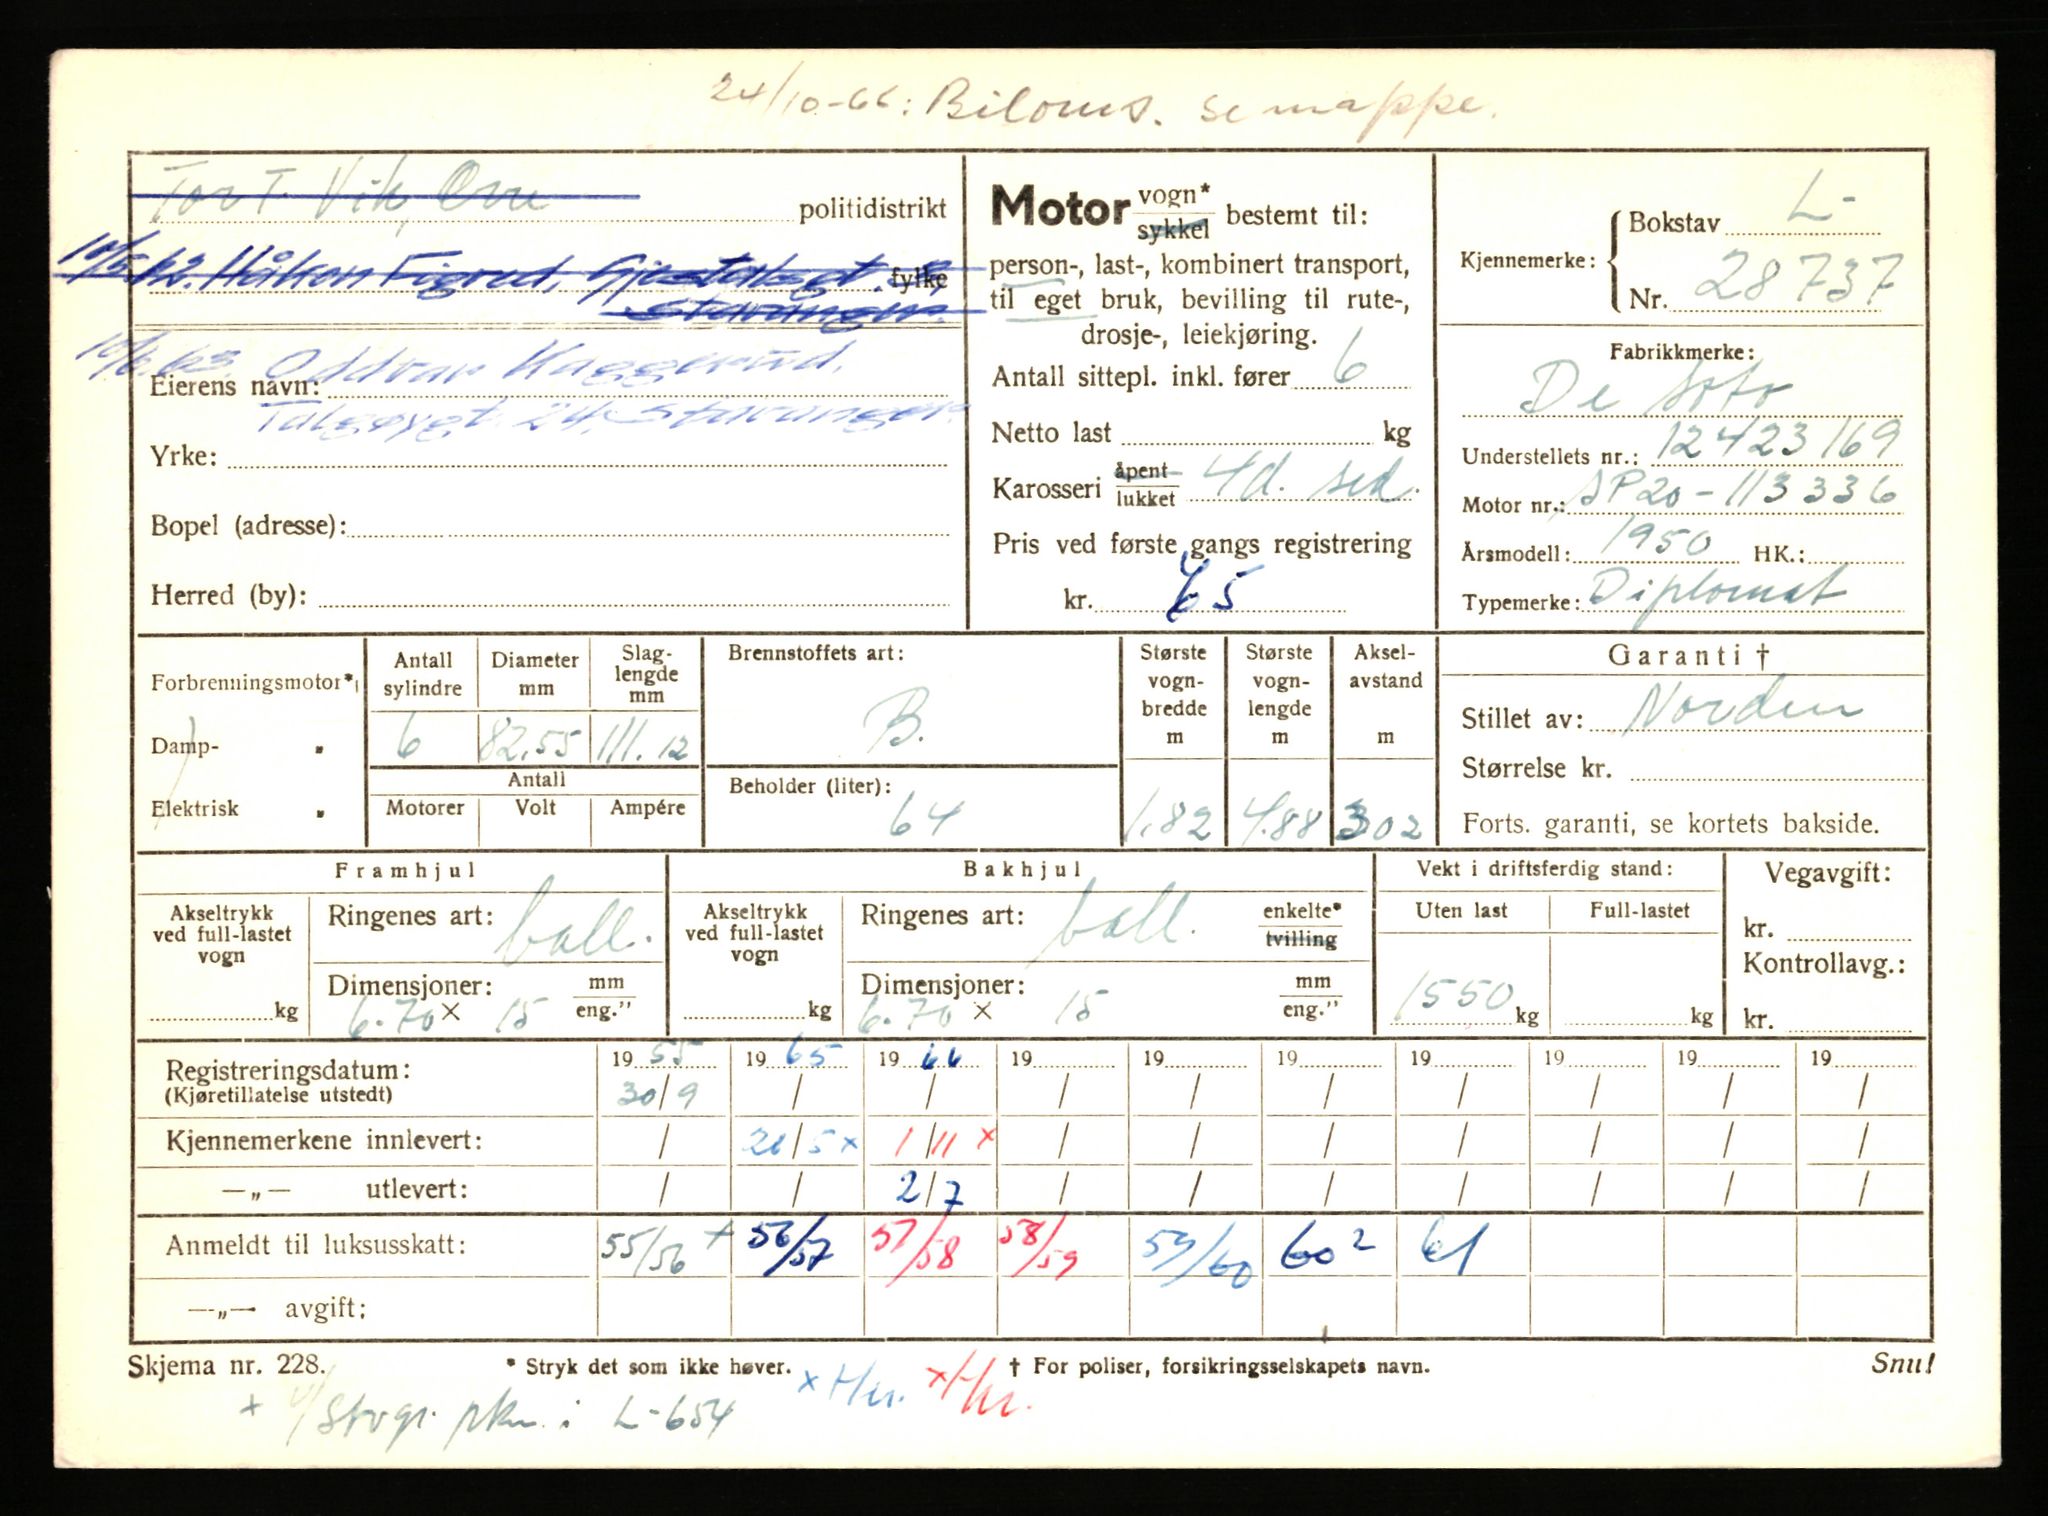 24/10-66: Biloms. se mappe.
Tor T. Vik, Orre politidistrikt
10/5.62. Håkon Figved, fylke
Stavanger.
10/6.63. Oddvar Haggerud,
Eierens navn:
Talgøygt. 24, Stavanger.
Yrke:
Bopel (adresse):
Herred (by):
Motor vogn*
sykkel bestemt til:
person-, last-, kombinert transport,
til eget bruk, bevilling til rute-,
drosje-, leiekjøring.
Antall sittepl. inkl. fører 6
Netto last kg
Karosseri åpent
lukket 4d. sed.
Pris ved første gangs registrering
kr. 65
Kjennemerke: Bokstav L-
Nr. 28737
Fabrikkmerke:
De Soto
Understellets nr.: 12423169
Motor nr.: SP20-113336
Årsmodell: 1950 HK.:
Typemerke: Diplomat
Forbrenningsmotor*
Damp- "
Elektrisk "
Antall sylindre Diameter mm Slag-lengde mm
6 82.55 111.12
Antall
Motorer Volt Ampére
Brennstoffets art:
B.
Beholder (liter):
64
Største vogn-bredde m
1.82
Største vogn-lengde m
4.88
Aksel-avstand m
302
Garanti †
Stillet av: Norden
Størrelse kr.
Forts. garanti, se kortets bakside.
Framhjul
Akseltrykk ved full-lastet vogn
kg
Ringenes art: ball.
Dimensjoner: mm
6.70 × 15 eng."
Bakhjul
Akseltrykk ved full-lastet vogn
kg
Ringenes art: ball. enkelte*
tvilling
Dimensjoner: mm
6.70 × 15 eng."
Vekt i driftsferdig stand:
Uten last Full-lastet
1550 kg kg
Vegavgift:
kr.
Kontrollavg.:
kr.
Registreringsdatum: 19 55 19 65 19 66 19 19 19 19 19 19 19
(Kjøretillatelse utstedt) 30/9 / / / / / / / / /
Kjennemerkene innlevert: / 21/5 x 1/11 x / / / / / / /
—„— utlevert: / / 2/7 / / / / / / /
Anmeldt til luksusskatt: 55/56 + 56/57 57/58 58/59 59/60 60² 61
—„— avgift:
Skjema nr. 228. * Stryk det som ikke høver. † For poliser, forsikringsselskapets navn. Snu!
x Hr. x Hr.
+ i L-654